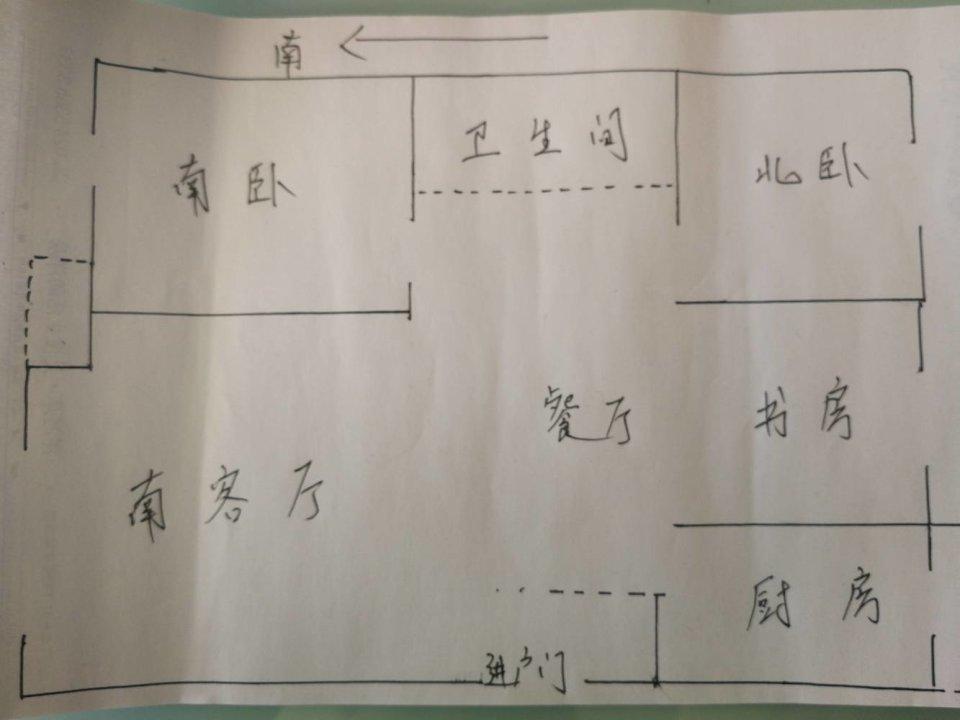 南
卫生间
南卧
北卧
餐厅
书房
南客厅
厨房
进户门